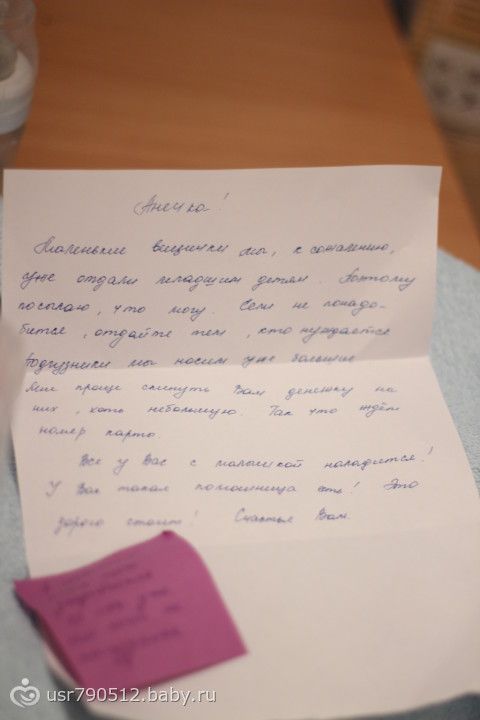 Анечка!
Маленькие вещички мы, к сожалению,
уже отдали младшим детям. Поэтому
посылаю, что могу. Если не понадо-
бится, отдайте тем, кто нуждается
Подгузники мы носим уже большие
Мне проще скинуть Вам денежку на
них, хоть небольшую. Так что ждём
номер карты.
Все у Вас с малышкой наладится!
У Вас такая помощница есть! Это
дорого стоит! Счастья Вам
usr790512.baby.ru